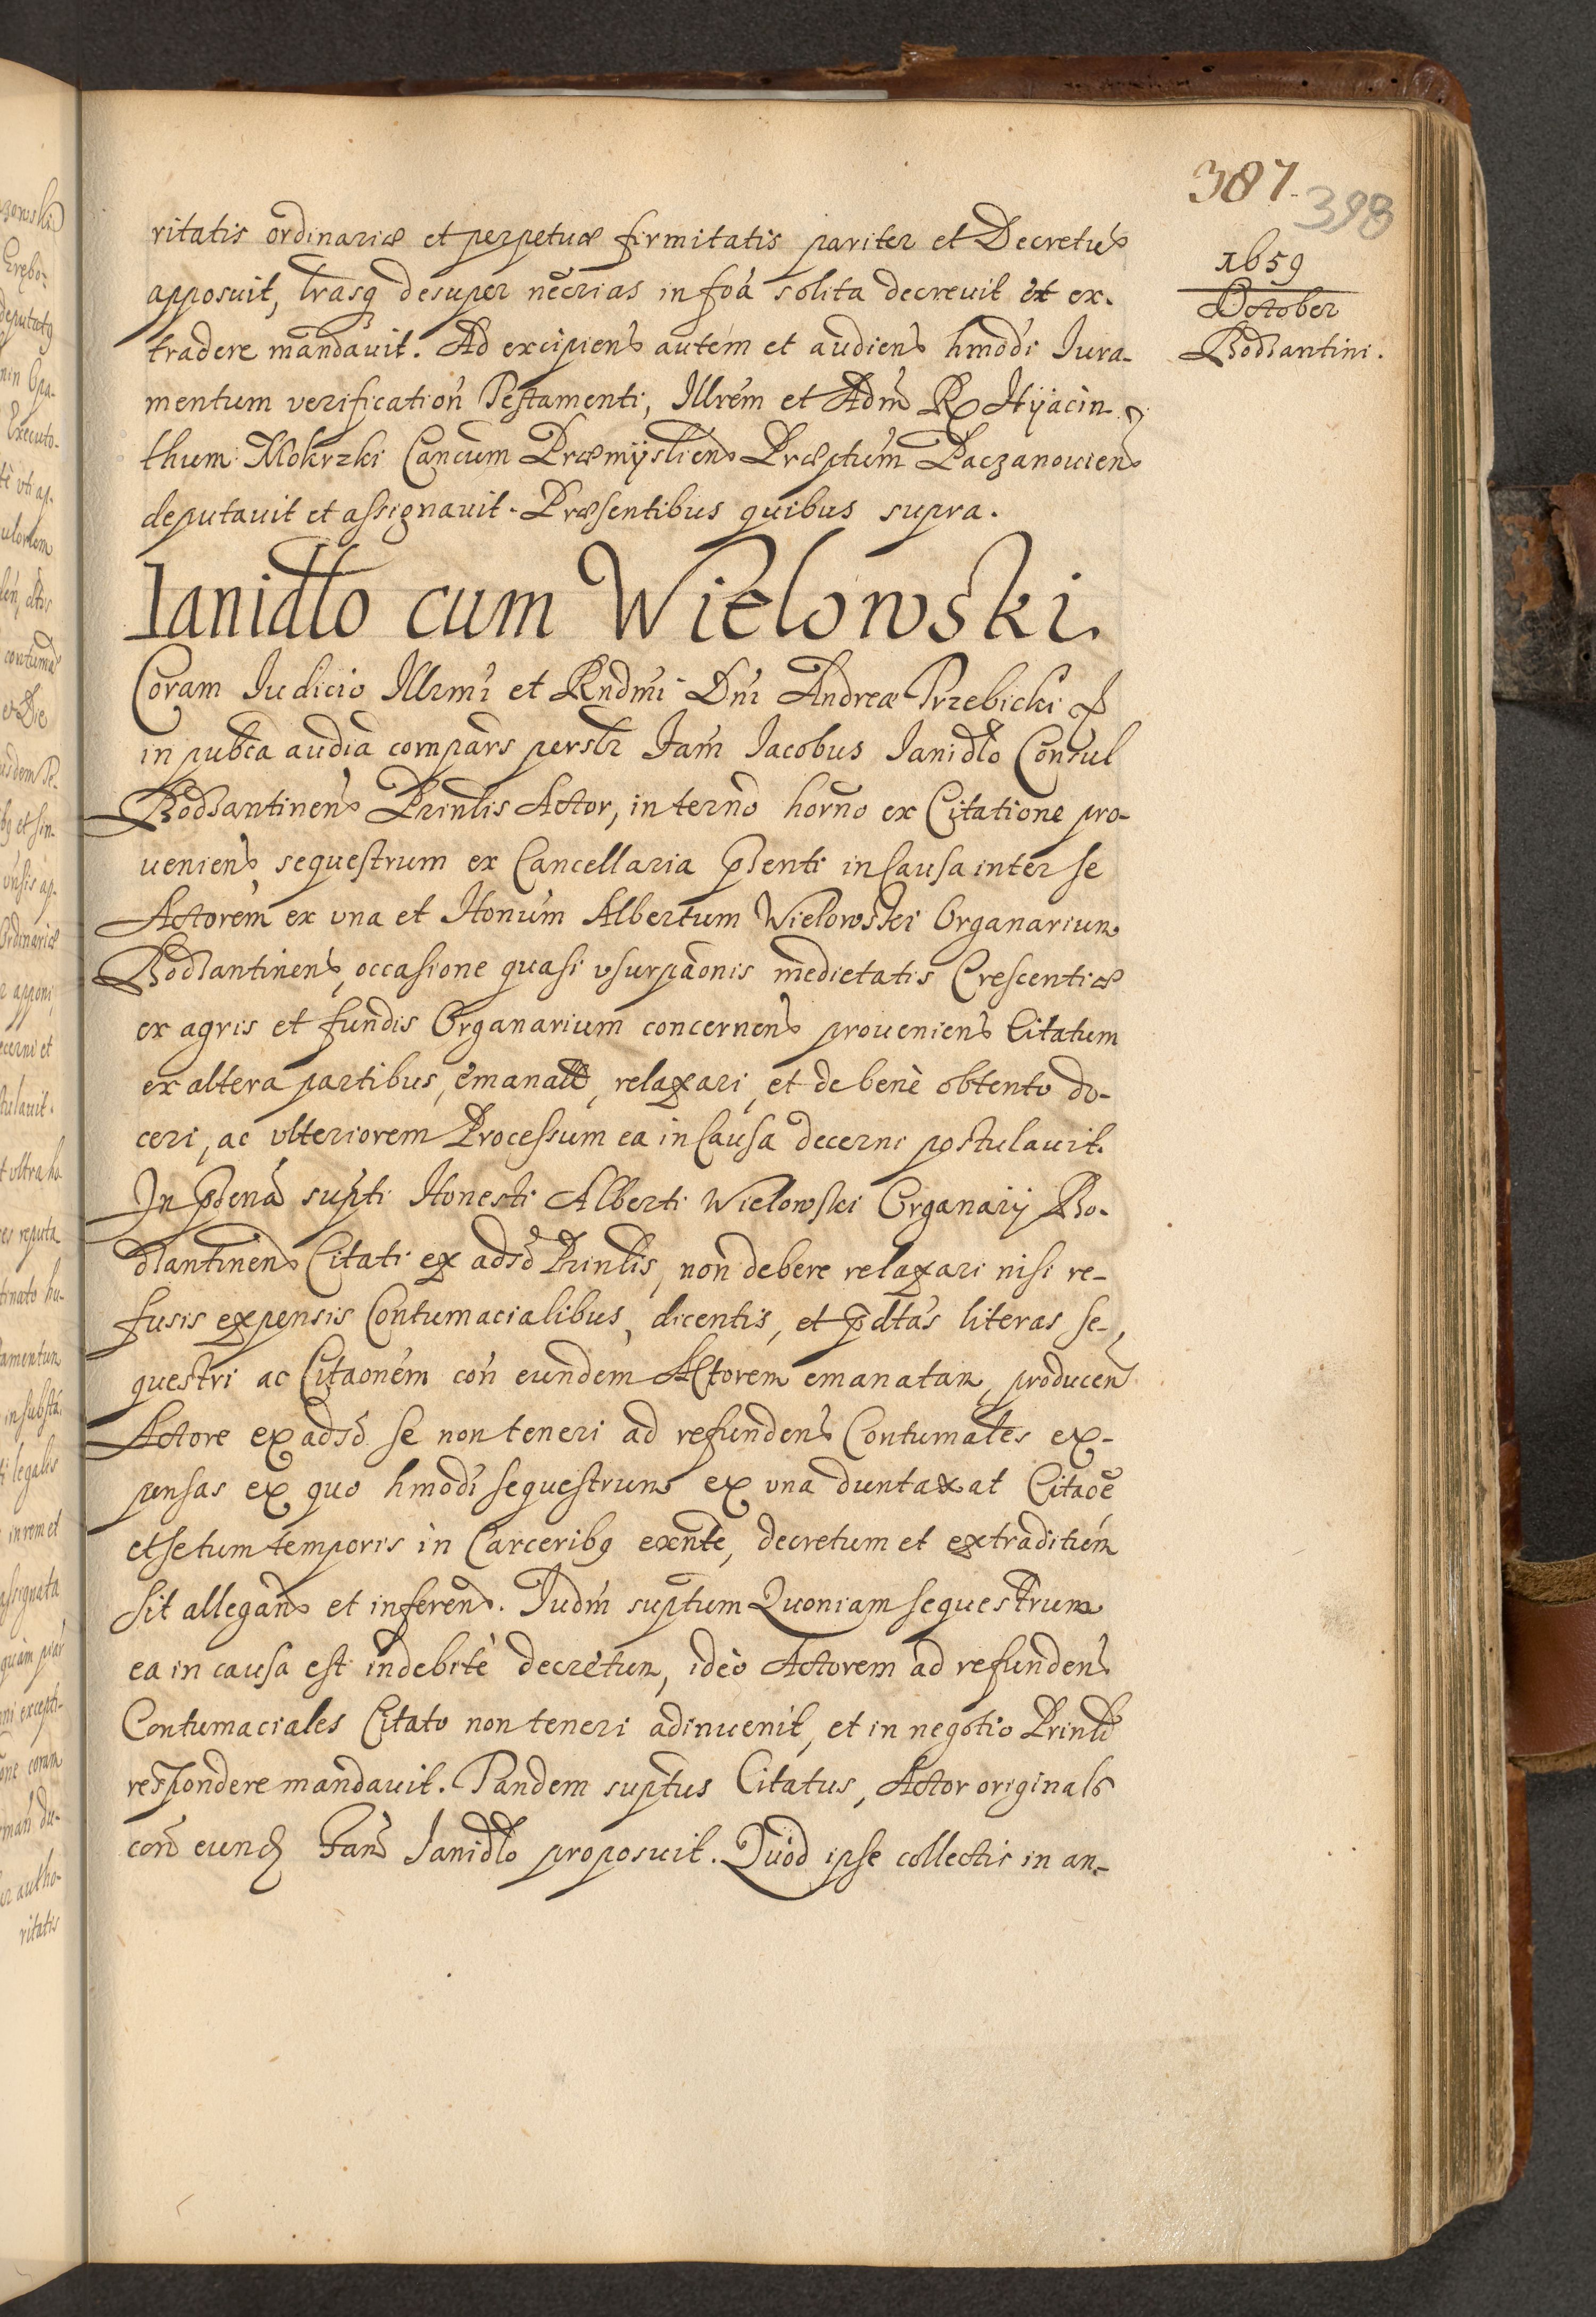 387.
398
1659
October
Bodzantini.
ritatis ordinariæ et perpetuæ firmitatis pariter et Decretũ
apposuit, lrasq desuper necrias in foa solita decrevit et ex-
tradere mandavit. Ad excipiens autem et audiens hmodi Iura-
mentum verification Testamenti, Illrem et Adm R Hÿacin-
thum Mokrzki Cancum Præmÿsliens Præptum Paczanoviens
deputavit et assignavit. Præsentibus quibus supra.
Ianidło cum Wielowski.
Coram Iudicio Illrmi et Rndmi Dni Andreæ Trzebicki
in pubca audia compars persltr Fam Iacobus Ianidło Consul
Bodzantinens Prinlis Actor, in terno horno ex Citatione pro-
veniens sequestrum ex Cancellaria psenti in Causa inter se
Actorem ex vna et Honum Albertum Wielowski Organarium
Bodzantinens, occasione quasi vsurpaonis medietatis Crescentiæ
ex agris et fundis Organarium concernens proveniens Citatum
ex altera partibus, emanatt, relaxari, et de bene obtento do-
ceri, ac vlteriorem Processum ea in Causa decerni postulavit.
In psena supti Honesti Alberti Wielowski Organarij Bo-
dzantinens Citati ex adsd Prinlis, non debere relaxari nisi re-
fusis expensis Contumacialibus, dicentis, et pdtas literas se-
questri ac Citaonem con eundem Actorem emanatam, producen
Actore ex adsd se non teneri ad refundens Contumales ex-
pensas ex quo hmodi sequestrum ex vna duntaxat Citaoe
et se tum temporis in Carceribq exnte, decretum et extraditum
sit allegans et inferens. Iudm suptum Quoniam sequestrum
ea in causa est indebite decretum, ideo Actorem ad refundens
Contumaciales Citato non teneri adinvenit, et in negotio Prinli
respondere mandavit. Tandem suptus Citatus, Actor originals
con eund Fam Ianidło proposuit. Quod ipse collectis in an-